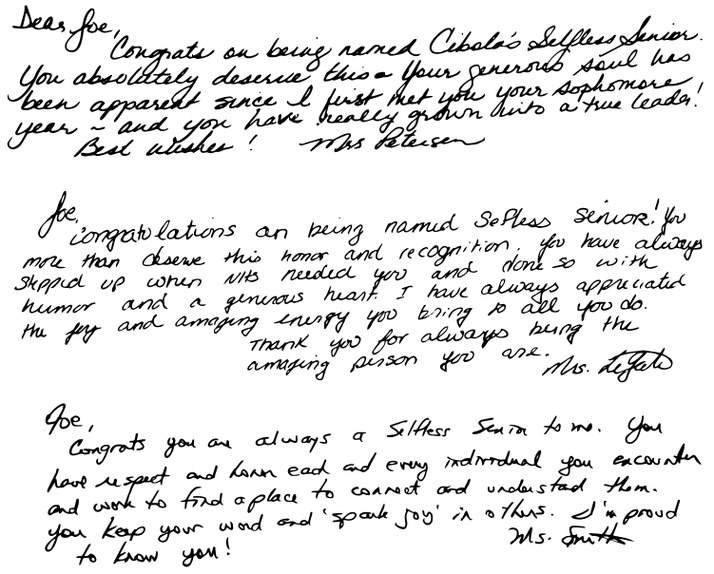 Dear Joe,
Congrats on being named Cibola's Selfless Senior.
You absolutely deserve this - Your generous soul has
been apparent since I first met you your sophomore
year - and you have really grown into a true leader!
Best wishes! Mrs Petersen
Joe,
Congratulations on being named Selfless Senior! You
more than deserve this honor and recognition. You have always
stepped up when NHS needed you and done so with
humor and a generous heart. I have always appreciated
the joy and amazing energy you bring to all you do.
Thank you for always being the
amazing person you are. Mrs.
Joe,
Congrats you are always a Selfless Senior to me. You
have respect and honor each and every individual you encounter
and work to find a place to connect and understand them.
you keep your word and 'spark joy' in others. I'm proud
to know you! Ms. Smith